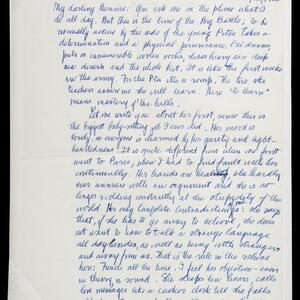 My darling Bonnie: You ask me on the phone what I
do all day. But this is the time of the Big Battle; to be
normally active by the side of the young Peter takes a
determination and a physical perseverance. One dresses,
puts on innumerable winter socks, shoes, boots on a deep
sea and the whole lot. It is like the first weeks
in the army. For the Pts it's a romp. The two ski
teachers assume she will learn. Here "to learn"
means mastery of the hills.
Let me write you about her first, since this is
the biggest baby-sitting job I ever did. Her mood is
lovely, everyone is charmed by her gaiety and light-
heartedness. It is quite different from when we first
went to Paris, when I had to find fault with her
continually. Her hands are healing, she hardly
ever answers with an argument and she is no
longer scolding constantly at the stupidity of this
world. Her only complete contradiction is: she says
that, if she has to go away to school, she does
not want to have to talk a strange language
all day besides, as well as being with strangers
and away from us. That is she in the scheme
here: French all the time. I feel her objection - even
in theory is sound. She sleeps ten hours, calls
love messages like a cuckoo clock till she falls